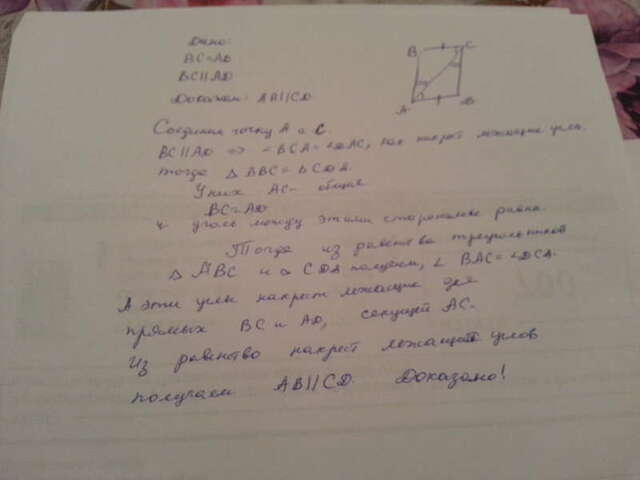 Дано:
BC=AD
BC||AD
Доказат: AB||CD
B C
A D
Соединим точку A и C.
BC||AD => ∠BCA=∠DAC, как накрест лежащие углы.
тогда △ABC=△CDA.
У них AC- общая
BC=AD
и углы между этими сторонами равны.
Тогда из равенства треугольников
△ABC и △CDA получаем, ∠BAC=∠DCA.
А эти углы накрест лежащие для
прямых BC и AD, секущей AC-
Из равенство накрест лежащей углов
получаем AB||CD. Доказано!